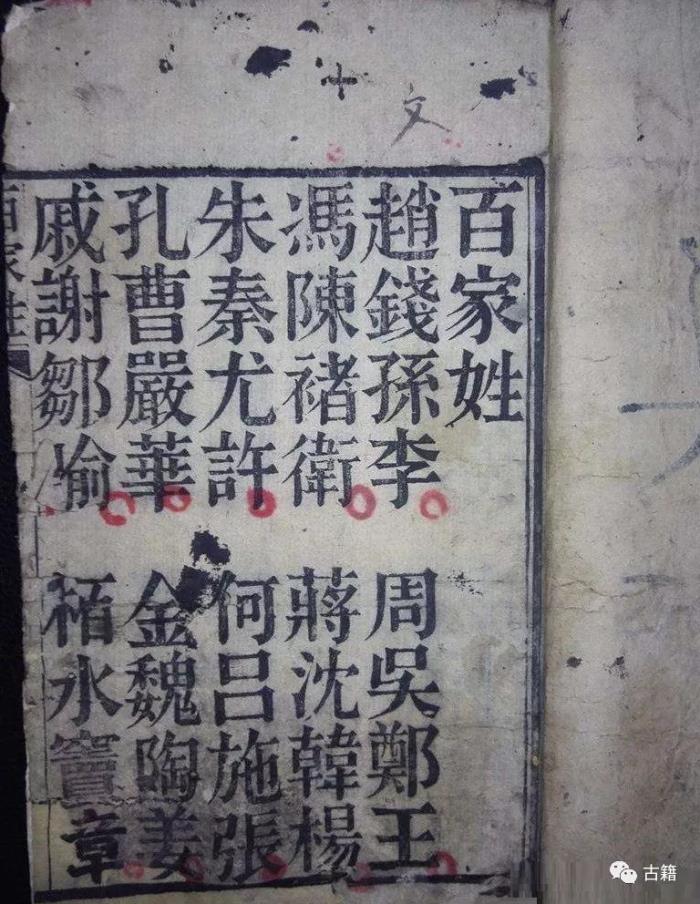 十
文
百家姓
趙錢孫李 周吳鄭王
馮陳褚衛 蔣沈韓楊
朱秦尤許 何吕施張
孔曹嚴華 金魏陶姜
戚謝鄒喻 栢水竇章
百家姓
古籍